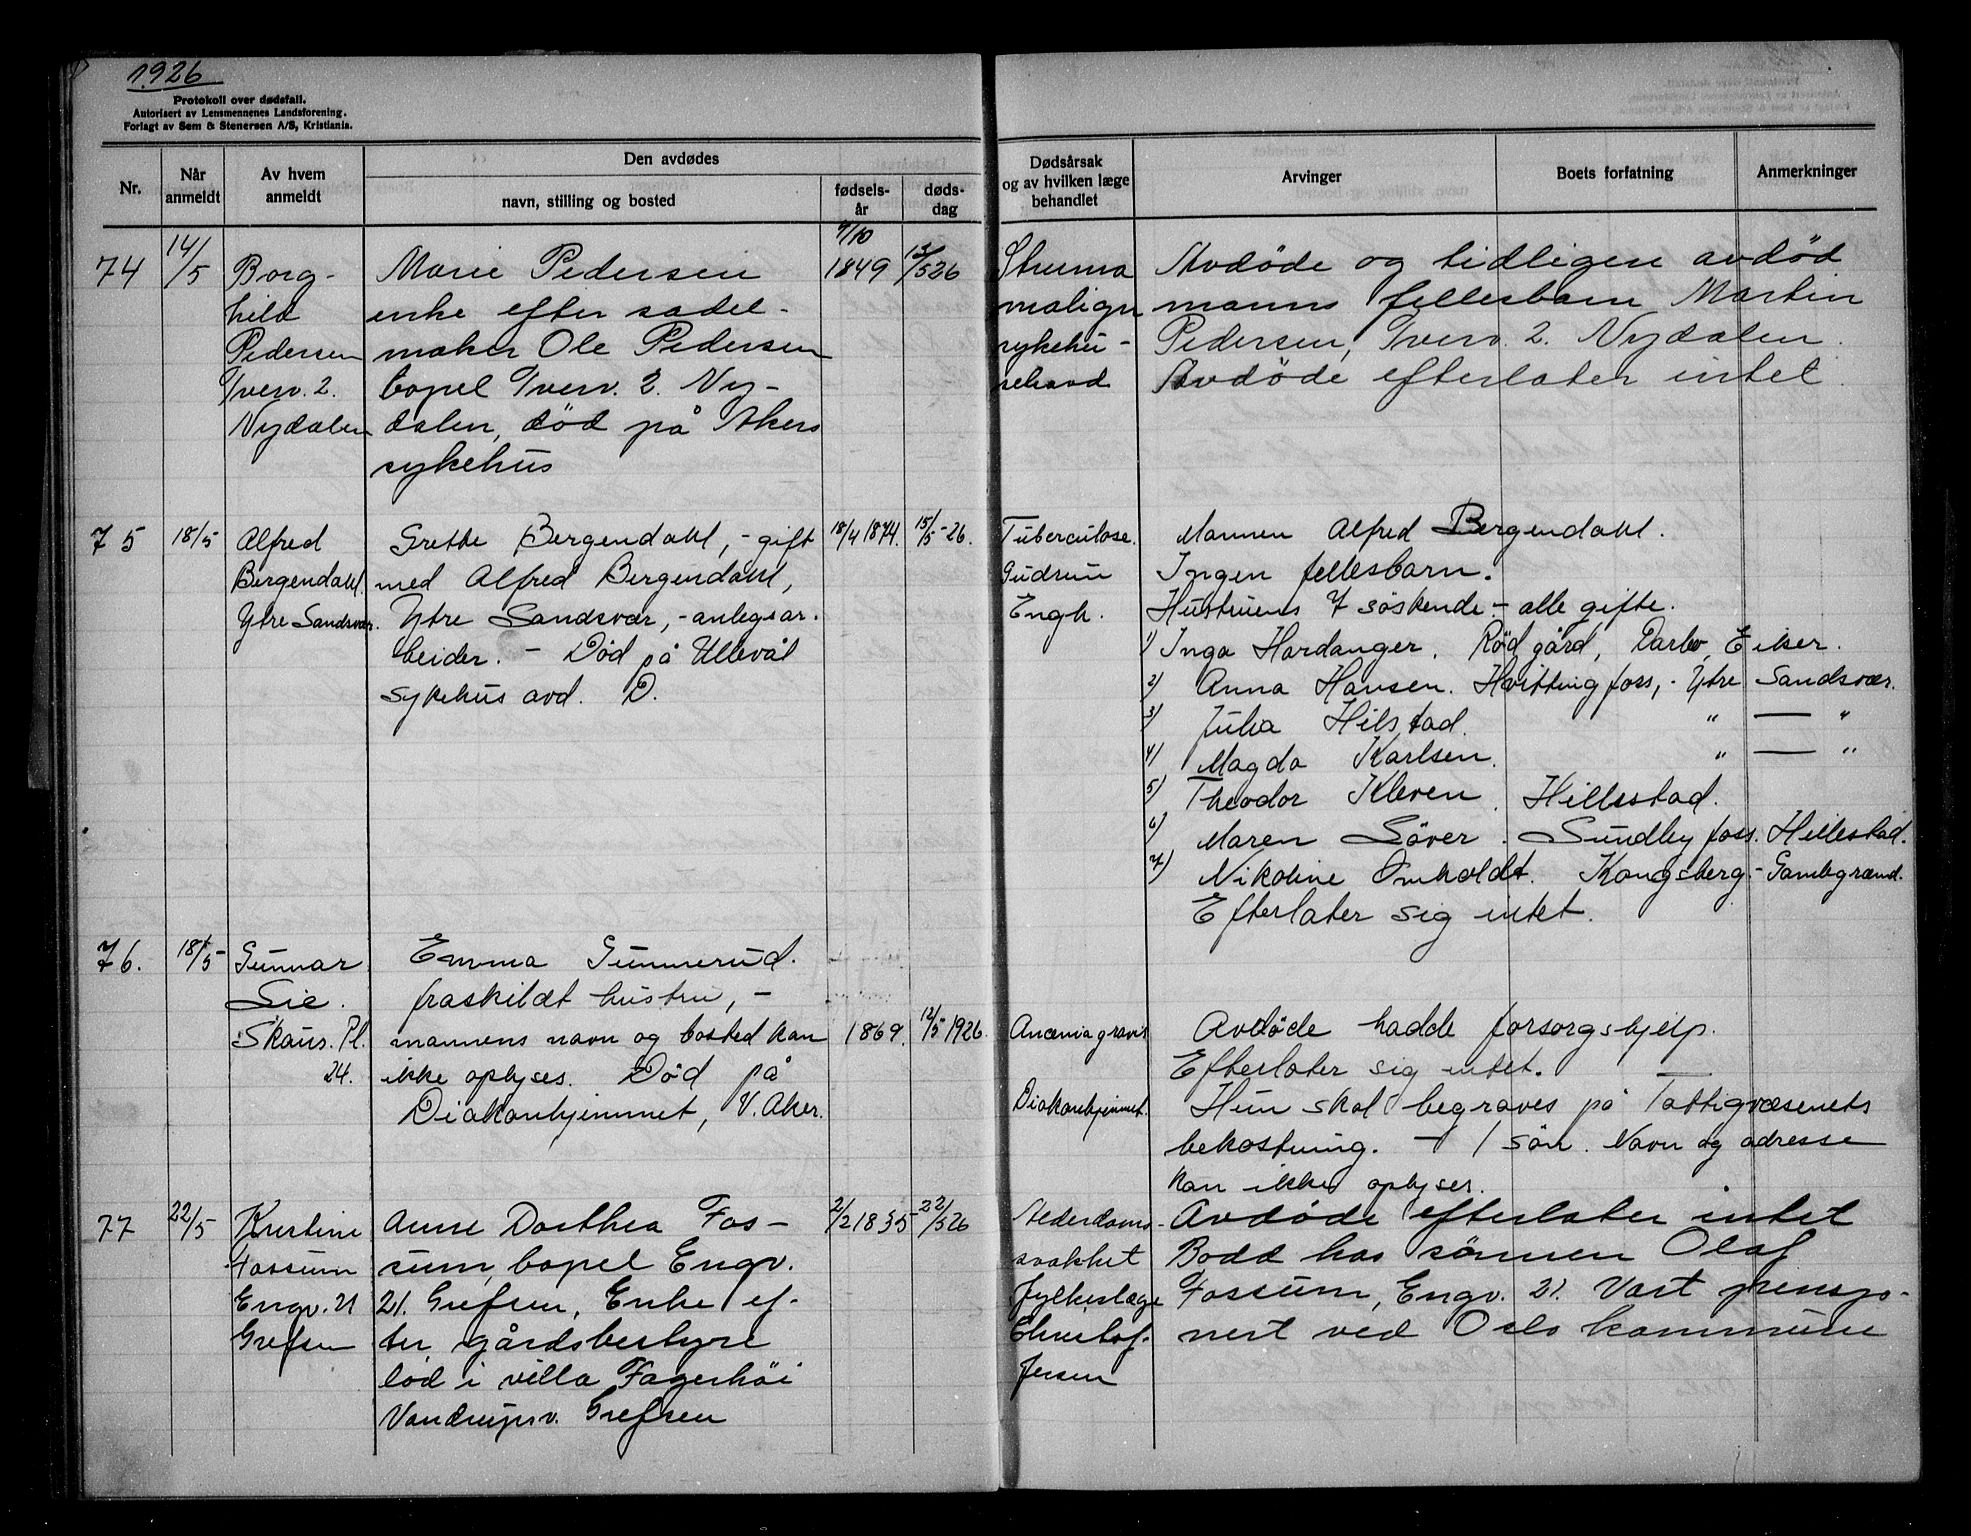 1926
Protokoll over dødsfall.
Autorisert av Lensmennenes Landsforening.
Forlagt av Sem & Stenersen A/S, Kristiania.
Nr.
Når anmeldt
Av hvem anmeldt
Den avdødes
navn, stilling og bosted
fødsels-år
døds-dag
Dødsårsak og av hvilken læge behandlet
Arvinger
Boets forfatning
Anmerkninger
74
14/5
Borg-
hild
Pedersen
Iverv. 2.
Nydalen
Marie Pedersen
enke efter sadel-
maker Ole Pedersen
bopel Iverv. 2. Ny-
dalen, död på Akers
sykehus
7/10
1849
13/5 26
Struma
malign
sykehu-
Avdöde og tidligere avdöd
manns fellesbarn Martin
Pedersen, Iverv. 2. Nydalen.
Avdöde efterlater intet.
75
18/5
Alfred
Bergendahl.
Ytre Sandsvær.
Grethe Bergendahl, - gift
med Alfred Bergendahl,
Ytre Sandsvær, - anlegsar.
beider. - Död på Ullevål
sykehus avd. D.
18/4 1874.
15/5-26.
Tuberculose.
Gudrun
Engh.
Mannen Alfred Bergendahl.
Ingen fellesbarn.
Hustruens 7 söskende - alle gifte.
1) Inga Hardanger. Rödgård, Darbo, Eiker.
2) Anna Hansen. Hvittingfoss, - Ytre Sandsvær.
3) Julia Hilstad. " — "
4) Magda Karlsen. " — "
5) Theodor Kleven. Hillestad.
6) Maren Löver. Sundbyfoss. Hillestad.
7) Nikoline Omholdt. Kongsberg - Gamlegrænd.
Efterlater sig intet.
76.
18/5
Gunnar
Lie.
Skaus. Pl.
24.
Emma Gunnerud.
fraskildt hustru, -
mannens navn og bosted kan
ikke oplyses. Död på
Diakonhjemmet, V. Aker.
1869.
12/5 1926.
Anæmia gravis
Diakonhjemmet.
Avdöde hadde forsorgshjelp.
Efterlater sig intet.
Hun skal begraves på Fattigvæsenets
bekostning. - 1 sön. Navn og adresse
kan ikke oplyses.
77
22/5
Kristine
Fossum
Engv. 21
Grefsen
Anne Dorthea Fos-
sum, bopel Engv.
21. Grefsen, Enke ef-
ter gårdsbestyre
död i villa Fagerhöi
Vandrupsv. Grefsen
2/2 1835
22/5 26
Alderdoms-
svakhet
Fylkeslæge
Christof.
Jensen
Avdöde efterlater intet
Bodd hos sönnen Olaf
Fossum, Engv. 21. Vart pensjo-
nert ved Oslo kommune